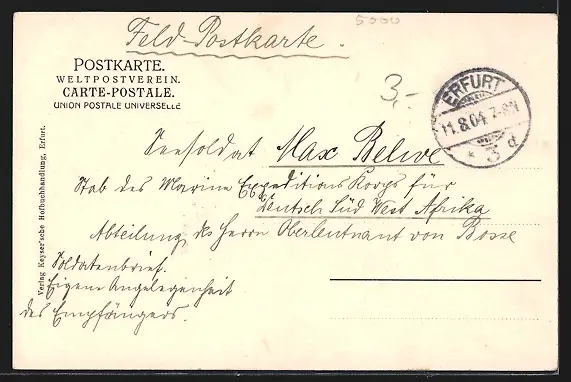 5000
Feld-Postkarte.
POSTKARTE.
WELTPOSTVEREIN.
CARTE-POSTALE.
UNION POSTALE UNIVERSELLE
3,-
ERFURT
11.8.04. 7-8N
* 3 d
Seesoldat Max Belwe
Stab des Marine Expeditions Korps für
Deutsch Süd West Afrika
Abteilung des Herrn Oberleutnant von Bosse
Soldatenbrief.
Eigene Angelegenheit
des Empfängers.
Verlag Keyser'sche Hofbuchhandlung, Erfurt.